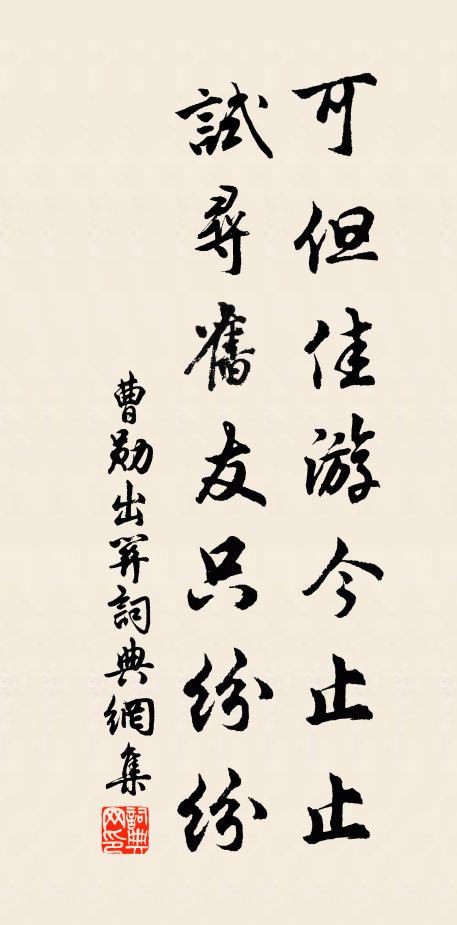 可但佳游今止止
試尋舊友只紛紛
曹勛出笄詞典網集
詞典网印